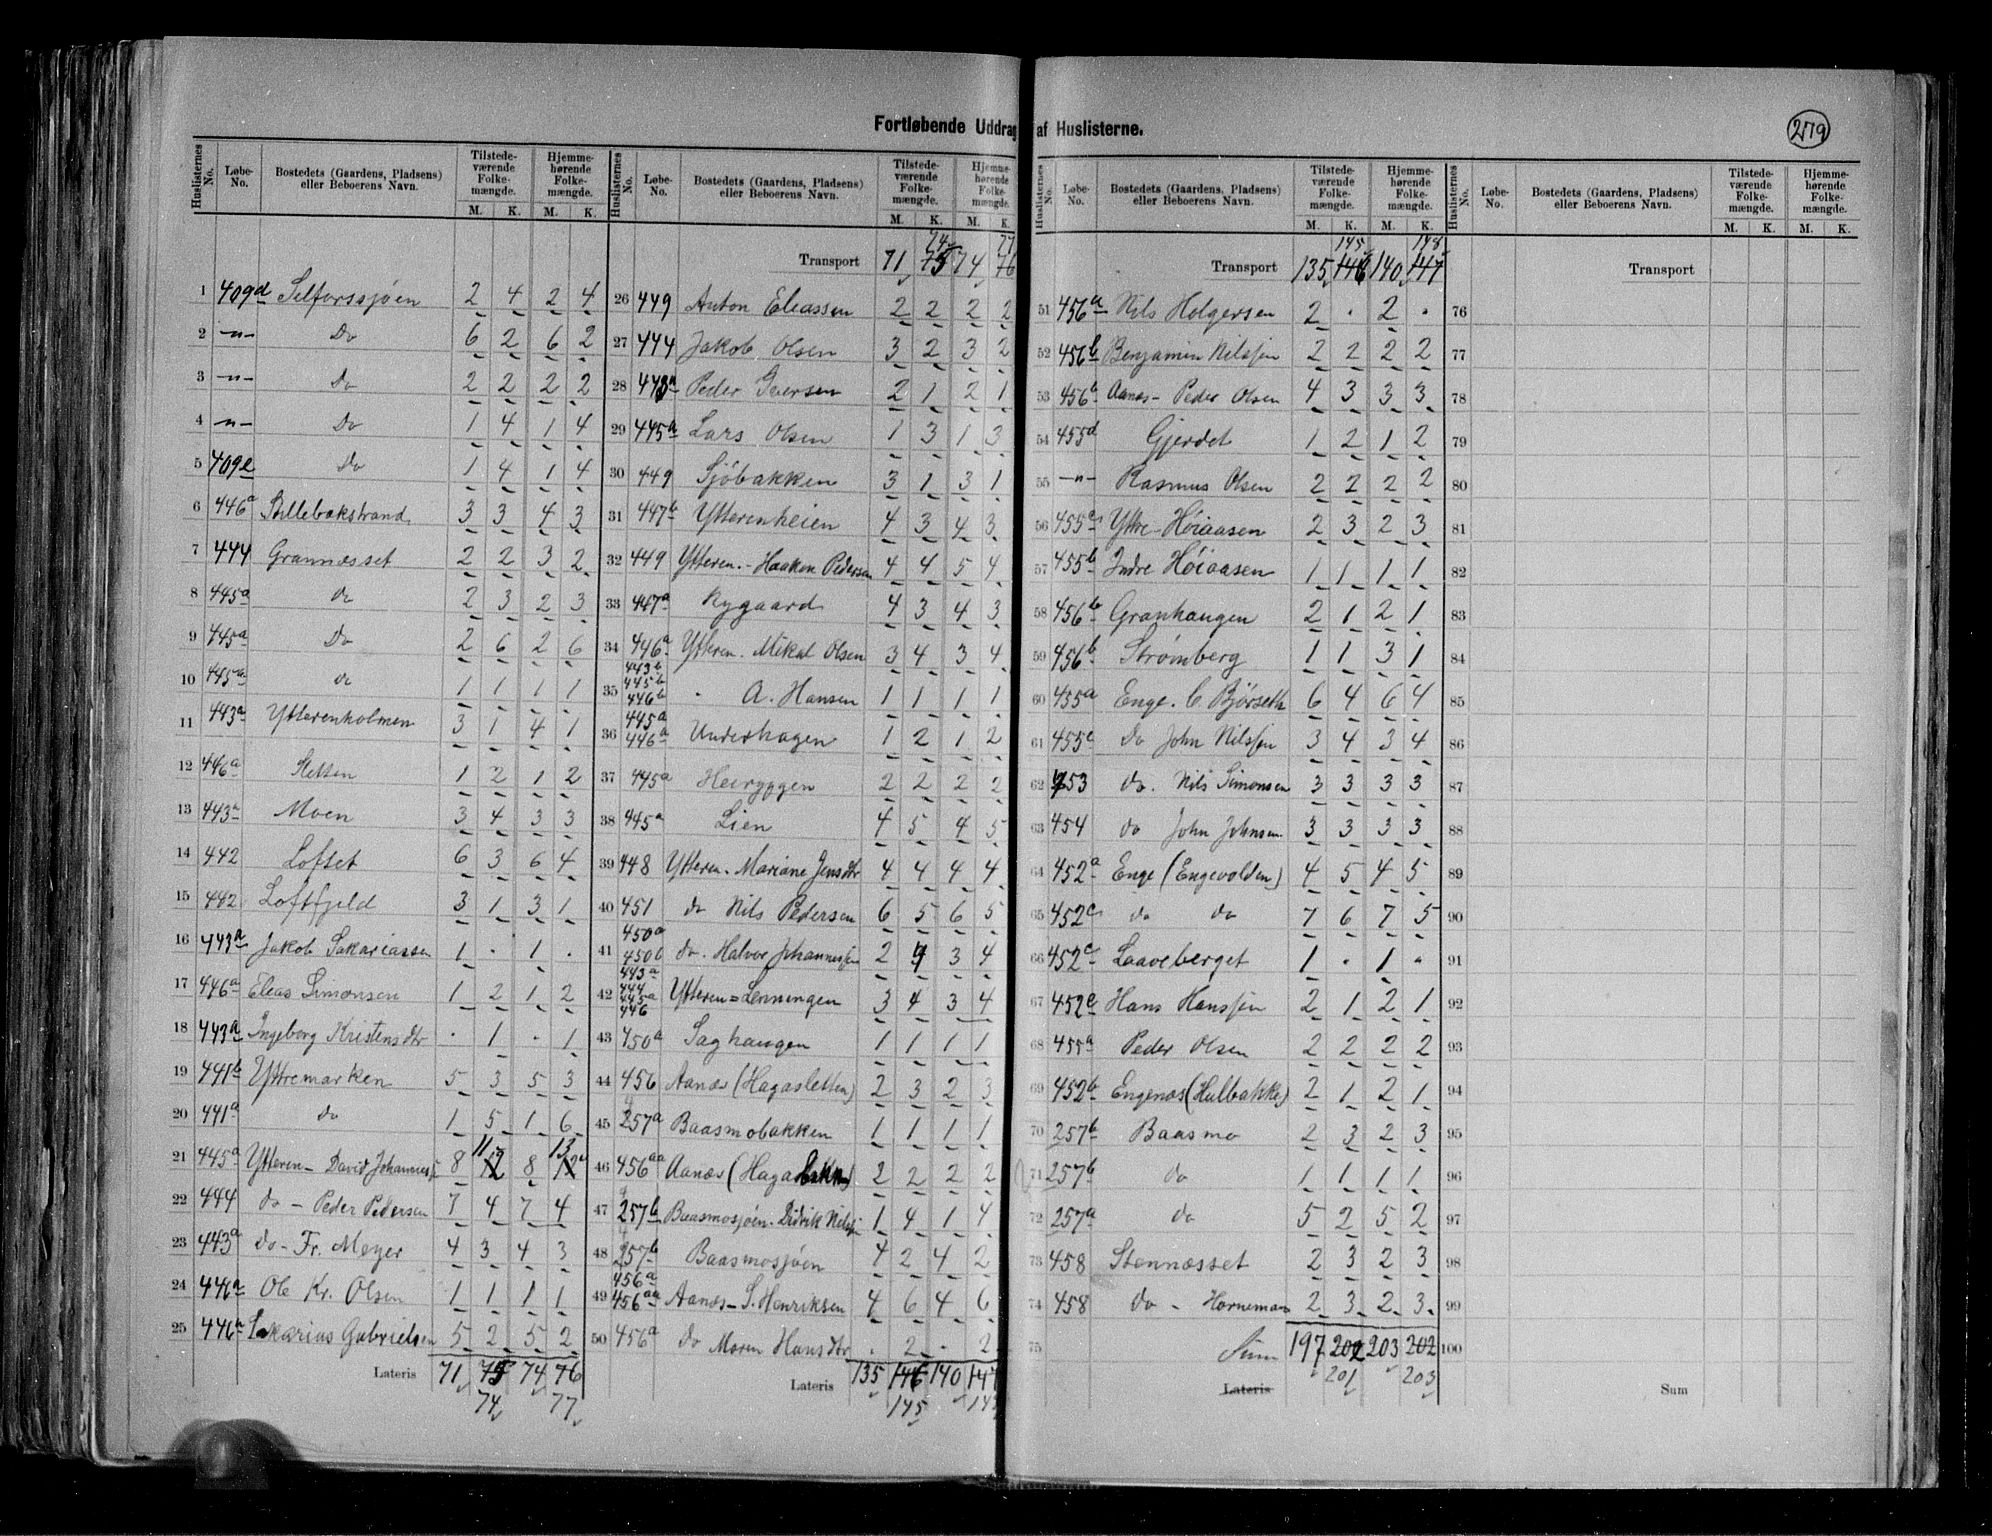 Fortløbende Uddrag af Huslisterne.
279
Huslisternes No. Løbe-No. Bostedets (Gaardens, Pladsens) eller Beboerens Navn. Tilstedeværende Folkemængde. M. K. Hjemmehørende Folkemængde. M. K.
1 409d Selforssjøen 2 4 2 4
2 -"- Do 6 2 6 2
3 -"- Do 2 2 2 2
4 -"- Do 1 4 1 4
5 409e Do 1 4 1 4
6 446a 3 3 4 3
7 444 Grannæsset 2 2 3 2
8 445a do 2 3 2 3
9 445a Do 2 6 2 6
10 445a do 1 1 1 1
11 443a Ytterenholmen 3 1 4 1
12 446a Sletten 1 2 1 2
13 443a Moen 3 4 3 3
14 442 Lofset 6 3 6 4
15 442 Loftfjeld 3 1 3 1
16 443a Jakob Sakariassen 1 . 1 .
17 446a Eleas Simonsen 1 2 1 2
18 443a Ingeborg Kristensdtr . 1 . 1
19 441b Yttremarken 5 3 5 3
20 441a do 1 5 1 6
21 445a Ytteren- David 8 12 11 8 12 13
22 444 do - Peder Pedersen 7 4 7 4
23 443a do - Fr. Meyer 4 3 4 3
24 446a Ole Kr. Olsen 1 1 1 1
25 446a Sakarias Gabrielsen 5 2 5 2
Lateris 71 75 74 76
74 77
Huslisternes No. Løbe-No. Bostedets (Gaardens, Pladsens) eller Beboerens Navn. Tilstedeværende Folkemængde. M. K. Hjemmehørende Folkemængde. M. K.
74 77
Transport 71 75 74 76
26 449 Anton Eleassen 2 2 2 2
27 444 Jakob Olsen 3 2 3 2
28 443a Peder Iversen 2 1 2 1
29 445a Lars Olsen 1 3 1 3
30 449 Sjöbakken 3 1 3 1
31 447b Ytterenheien 4 3 4 3
32 449 Ytteren.- Haakon Pedersen 4 4 5 4
33 447a Nygaard 4 3 4 3
34 446a Ytteren. Mikal Olsen 3 4 3 4
35 443b 445b 446b " A. Hansen 1 1 1 1
36 445a 446a Underhagen 1 2 1 2
37 445a Heiryggen 2 2 2 2
38 445a Lien 4 5 4 5
39 448 Ytteren. Mariane Jensdtr 4 4 4 4
40 451 do Nils Pedersen 6 5 6 5
41 450a 450b do. Halvor Johannessen 2 4 3 4
42 443a 444 445a 446 Ytteren=Lenningen 3 4 3 4
43 450a Saghaugen 1 1 1 1
44 456 Aanæs (Hagasletten) 2 3 2 3
45 257a Baasmobakken 1 1 1 1
46 456aa Aanæs ( 2 2 2 2
47 257b Baasmosjøen. Didrik 1 4 1 4
48 257b Baasmosjøen 4 2 4 2
49 456a 456aa Aanæs- S. Henriksen 4 6 4 6
50 456a do Maren Hansdtr . 2 . 2
Lateris 135 146 140 147
145
Huslisternes No. Løbe-No. Bostedets (Gaardens, Pladsens) eller Beboerens Navn. Tilstedeværende Folkemængde. M. K. Hjemmehørende Folkemængde. M. K.
145 148
Transport 135 146 140 147
51 456a Nils Holgersen 2 . 2 .
52 456b Benjamin Nilssen 2 2 2 2
53 456a Aanæs- Peder Olsen 4 3 3 3
54 455d Gjerdet 1 2 1 2
55 -"- Rasmus Olsen 2 2 2 2
56 455a Yttre-Høiaasen 2 3 2 3
57 455b Indre Høiaasen 1 1 1 1
58 456b Granhaugen 2 1 2 1
59 456b Strømberg 1 1 3 1
60 455a Enge. C. Bjørseth 6 4 6 4
61 455c Do John Nilssen 3 4 3 4
62 453 do. Nils Simonsen 3 3 3 3
63 454 do John Johnsen 3 3 3 3
64 452a Enge (Engevolden) 4 5 4 5
65 452c do do 7 6 7 5
66 452c Laaveberget 1 . 1 .
67 452c Hans Hanssen 2 1 2 1
68 455a Peder Olsen 2 2 2 2
69 452b Engenæs (Hulbakken) 2 1 2 1
70 257b Baasmo 2 3 2 3
71 257b do 1 1 1 1
72 257a do 5 2 5 2
73 458 Stennæsset 2 3 2 3
74 458 do - Horneman 2 3 2 3
75 Sum 197 202 203 202
Lateris 201 203
Huslisternes No. Løbe-No. Bostedets (Gaardens, Pladsens) eller Beboerens Navn. Tilstedeværende Folkemængde. M. K. Hjemmehørende Folkemængde. M. K.
Transport
76
77
78
79
80
81
82
83
84
85
86
87
88
89
90
91
92
93
94
95
96
97
98
99
100
Sum